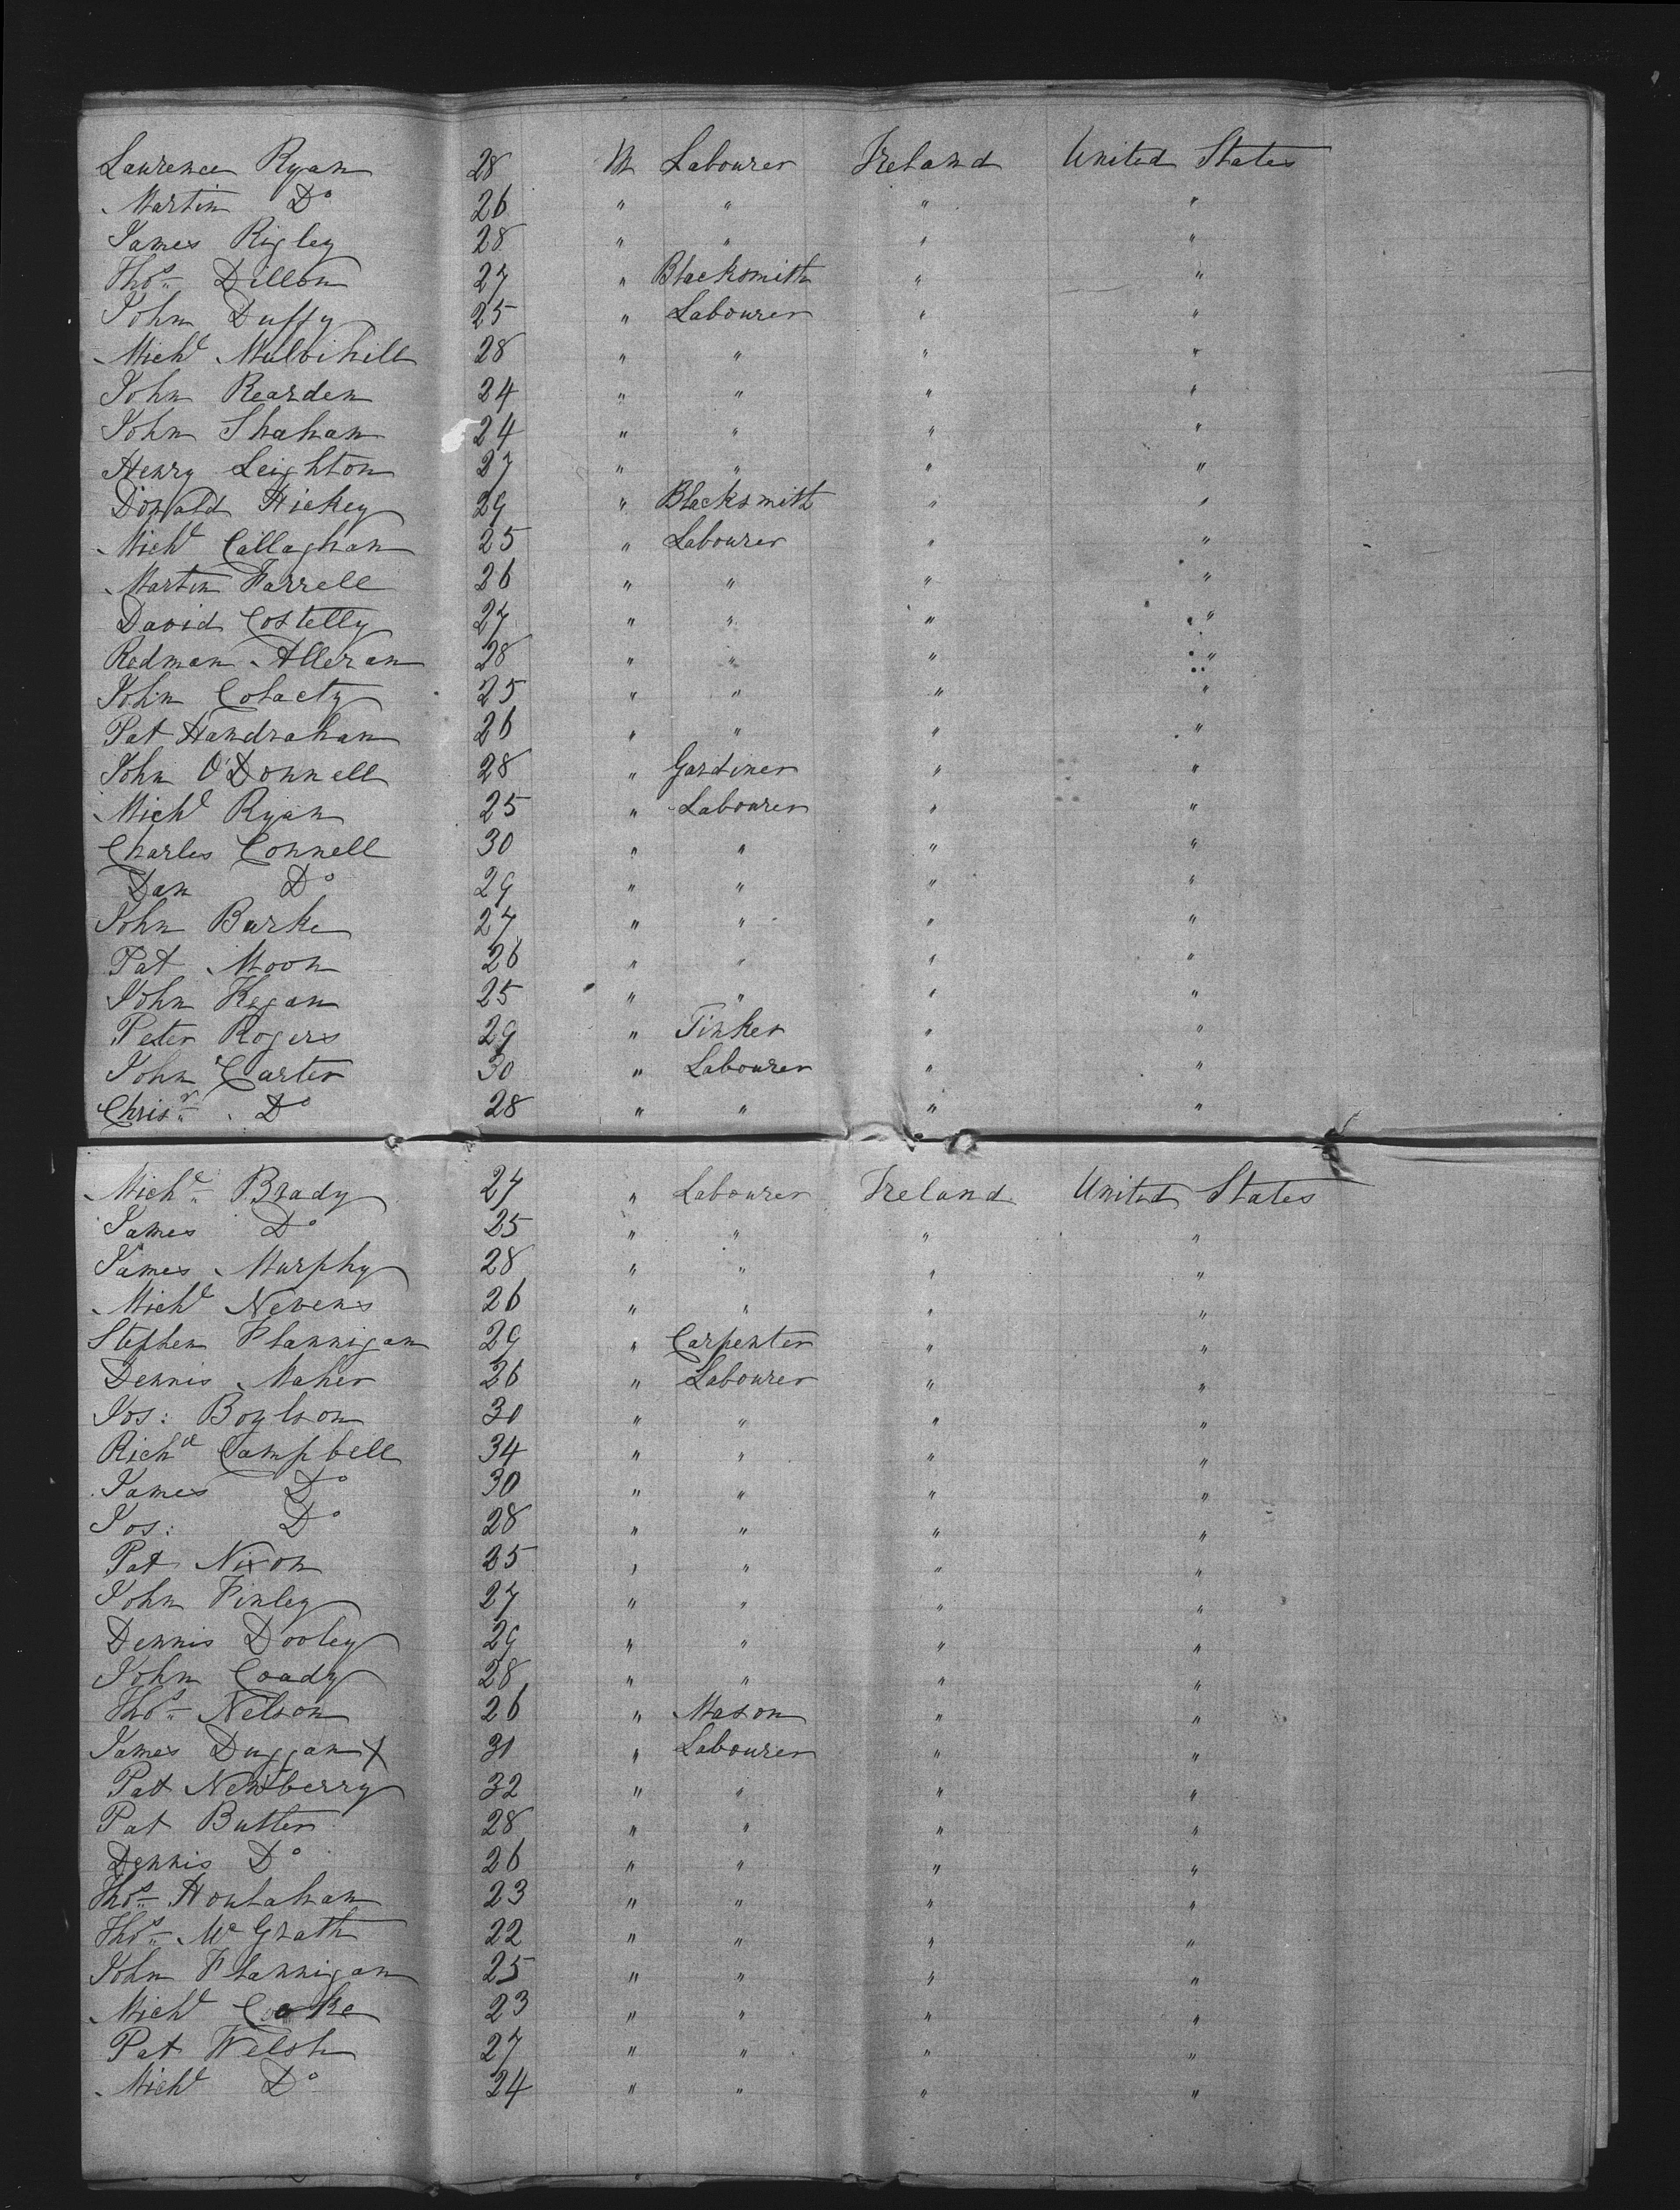 Lawrence Ryan 28 M Labourer Ireland United States
Martin Do 26 " " " "
James Rigley 28 " " " "
Thos. Dillon 27 " Blacksmith " "
John Duffy 25 " Labourer " "
Michl Mulvihill 28 " " " "
John Rearden 24 " " " "
John Shahan 24 " " " "
Henry Leighton 27 " " " "
Donald Hickey 29 " Blacksmith " "
Michl Callaghan 25 " Labourer " "
Martin Farrell 26 " " " "
David Costelly 27 " " " "
Redman Alleran 28 " " " "
John 25 " " " "
Pat Handrahan 26 " " " "
John O'Donnell 28 " Gardiner " "
Michl Ryan 25 " Labourer " "
Charles Connell 30 " " " "
Dan Do 29 " " " "
John Burke 27 " " " "
Pat Moon 26 " " " "
John Kegan 25 " " " "
Peter Rogers 29 " Tinker " "
John Carter 30 " Labourer " "
Chrisr. Do 28 " " " "
Michl. Brady 27 " Labourer Ireland United States
James Do 25 " " " "
James Murphy 28 " " " "
Michl Nevens 26 " " " "
Stephen Flannigan 29 " Carpenter " "
Dennis Maher 26 " Labourer " "
Jos: Boylson 30 " " " "
Richd Campbell 34 " " " "
James Do 30 " " " "
Jos: Do 28 " " " "
Pat Nixon 25 " " " "
John Finley 27 " " " "
Dennis Dooley 29 " " " "
John Coady 28 " " " "
Thos. Nelson 26 " Mason " "
James Duggan X 30 " Labourer " "
Pat Newberry 32 " " " "
Pat Butler 28 " " " "
Dennis Do 26 " " " "
Thos. Houlahan 23 " " " "
Thos. Mc Grath 22 " " " "
John Flannigan 25 " " " "
Michl Cooke 23 " " " "
Pat Welsh 27 " " " "
Michl Do 24 " " " "